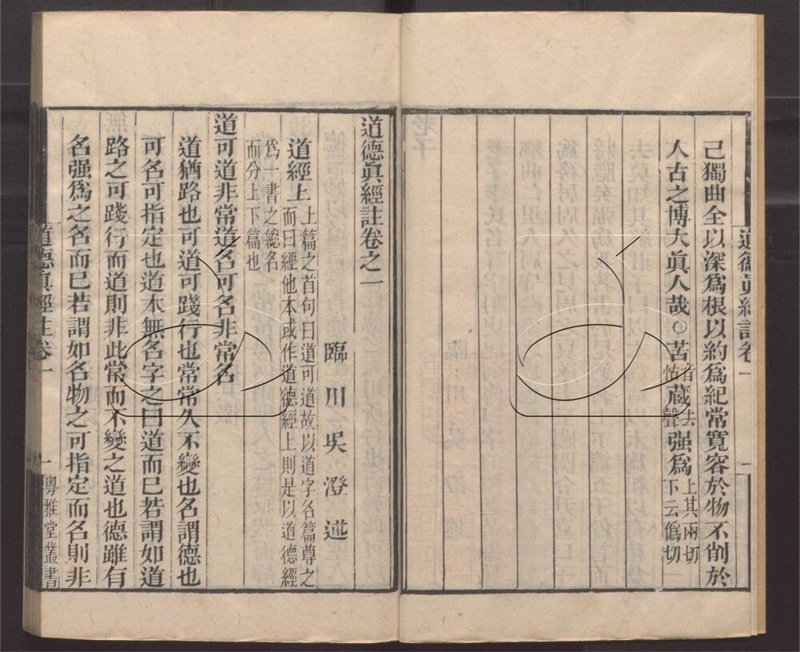 道德眞經註卷一
己獨曲全以深爲根以約爲紀常寬容於物不削於
人古之博大眞人哉○苦音怙藏去聲强爲上其兩切下云僞切
一
道德眞經註卷之一
臨川吳澄述
道經上上篇之首句曰道可道故以道字名篇尊之而曰經他本或作道德經上則是以道德經
爲一書之總名而分上下篇也
道可道非常道名可名非常名
道猶路也可道可踐行也常常久不變也名謂德也
可名可指定也道本無名字之曰道而已若謂如道
路之可踐行而道則非此常而不變之道也德雖有
名强爲之名而已若謂如名物之可指定而名則非
道德眞經註卷一
一
粤雅堂叢書